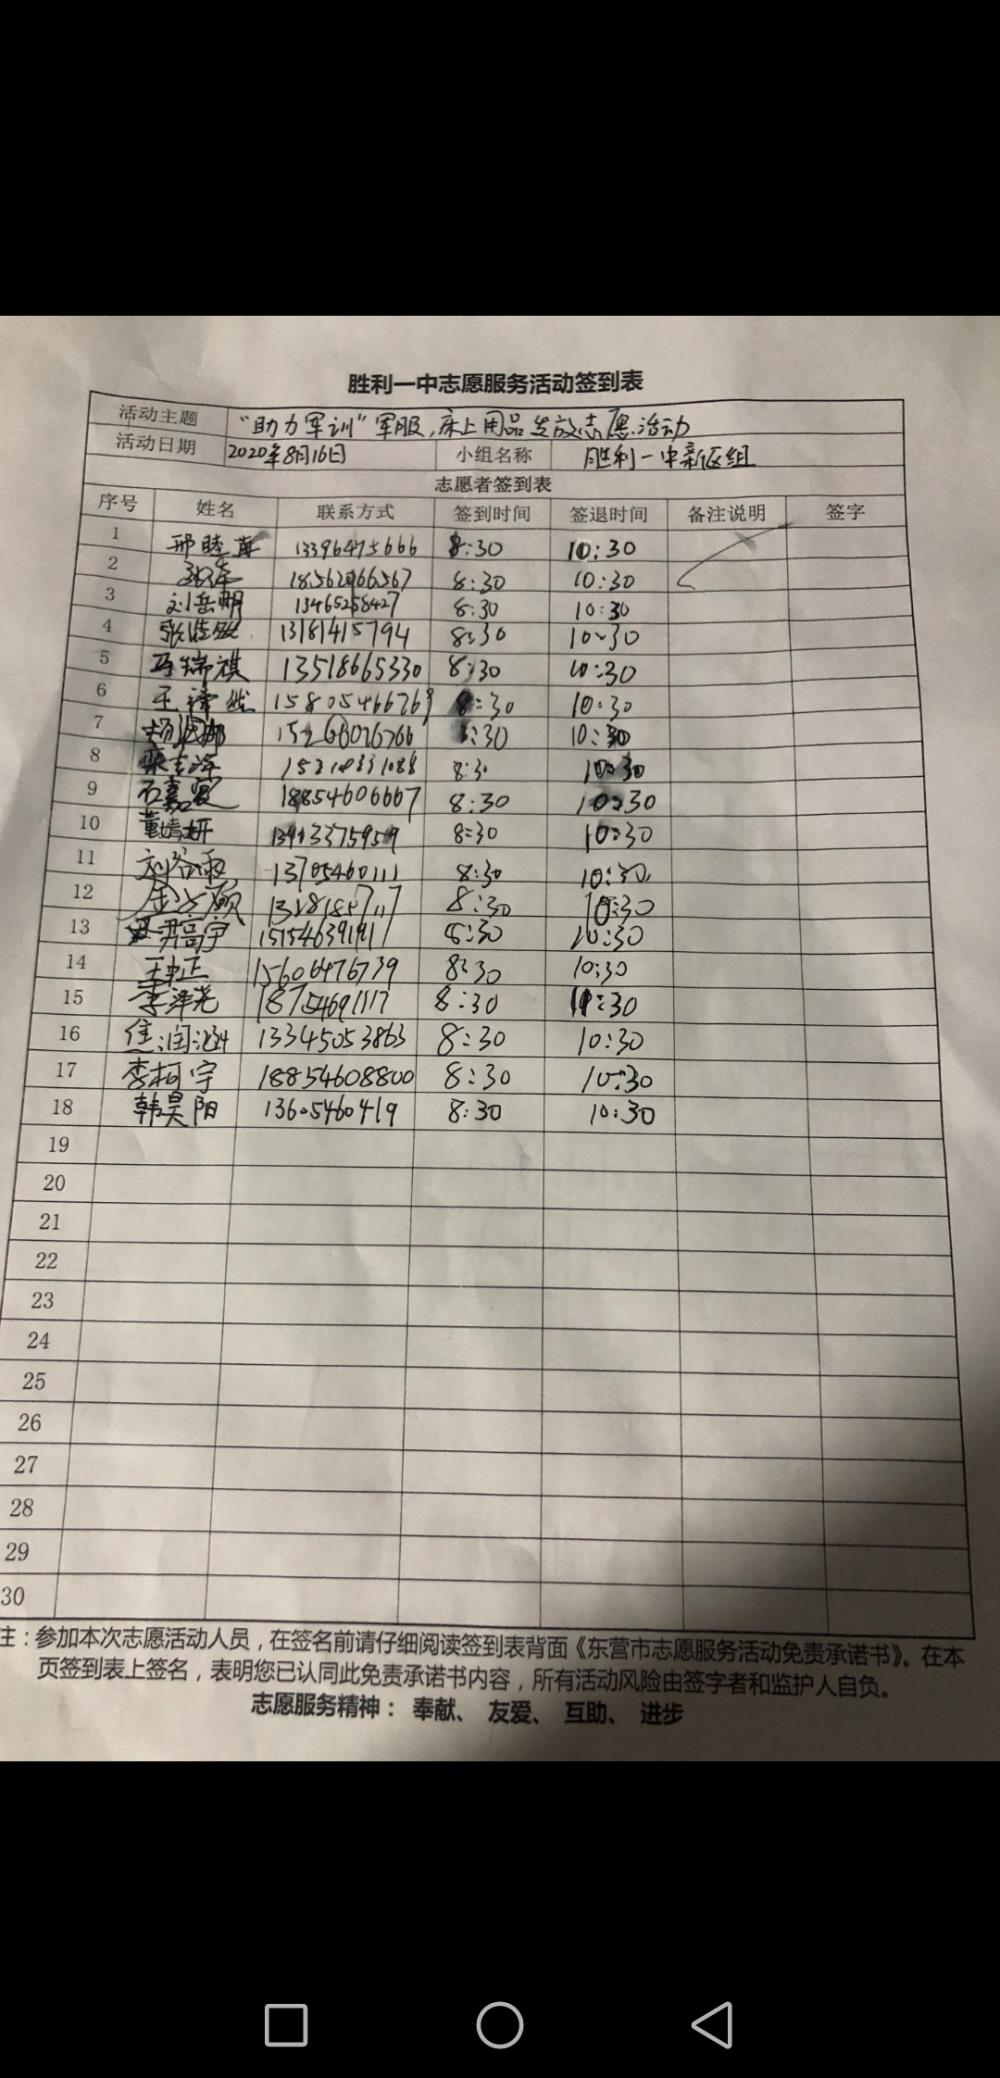 胜利一中志愿服务活动签到表
活动主题 "助力军训"军服,床上用品发放志愿活动
活动日期 2020年8月16日 小组名称 胜利一中新区组
志愿者签到表
序号 姓名 联系方式 签到时间 签退时间 备注说明 签字
1 13396475666 8:30 10:30
2 18562966567 8:30 10:30
3 刘岳明 13465258427 8:30 10:30
4 13181415794 8:30 10:30
5 马瑞祺 13518665330 8:30 10:30
6 8:30 10:30
7 8:30 10:30
8 10:30
9 18854606667 8:30 10:30
10 董婧妍 8:30 10:30
11 刘谷雨 13705460111 8:30 10:30
12 8:30 10:30
13 尹高宇 8:30 10:30
14 15606476739 8:30 10:30
15 李泽尧 18754691117 8:30
16 焦润涵 13345053863 8:30 10:30
17 李柯宇 18854608800 8:30 10:30
18 韩昊阳 13605460419 8:30 10:30
19
20
21
22
23
24
25
26
27
28
29
30
注:参加本次志愿活动人员,在签名前请仔细阅读签到表背面《东营市志愿服务活动免责承诺书》。在本
页签到表上签名,表明您已认同此免责承诺书内容,所有活动风险由签字者和监护人自负。
志愿服务精神: 奉献、 友爱、 互助、 进步